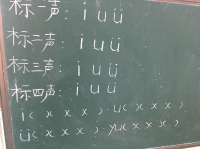 标一声: i u ü
标二声: i u ü
标三声: i u ü
标四声: i u ü
i(x x x) . u(x x x)
ü(x x x) . yu(x x x)